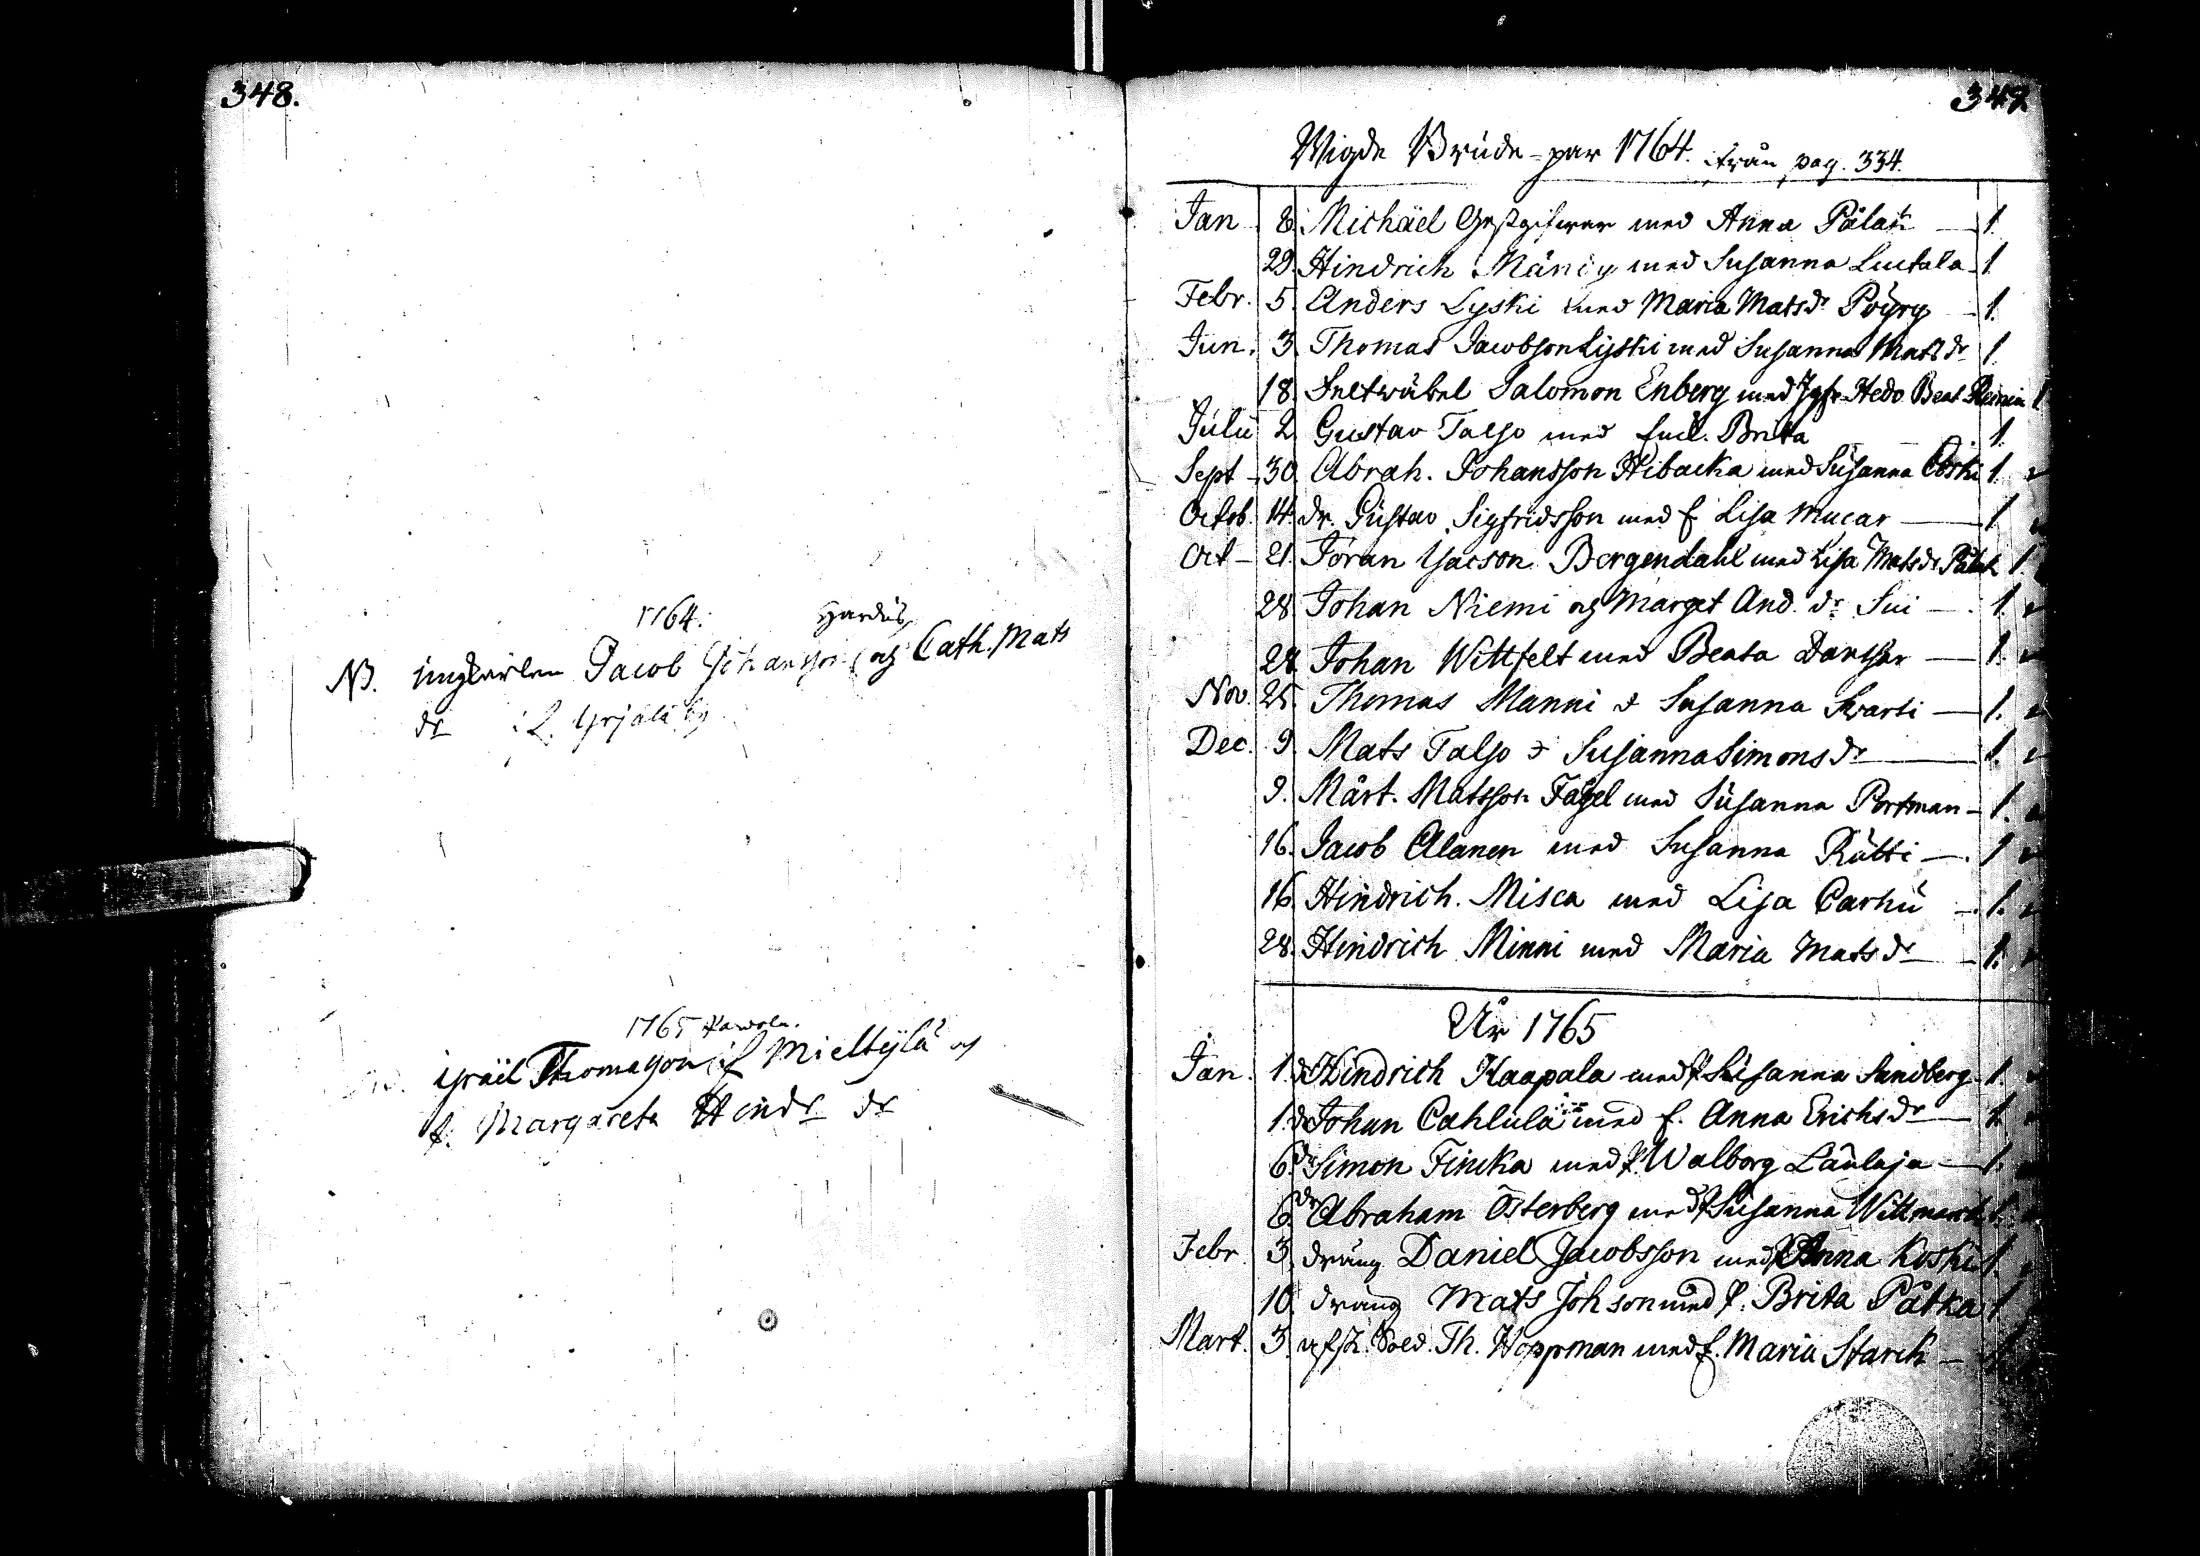 348.
1764. Hardus
NB. ungkarlen Jacob Johansson og Cath. Mats
dr
1765
Israël Thomasson Mieltylä og
f. Margareta Hindr dr
349
Wigde Brude-par 1764. ifrån pag. 334.
Jan 8. Michäel Gestgifwer med Anna Pålak 1.
29. Hindrich med Susanna Luctala 1
Febr. 5. Anders Lyski med Maria Matsdr Pöyry 1.
Jun. 3. Thomas Jacobson Lyski med Susanna Matsdr 1
18. Feltwäbel Salomon Enberg med Jgfr Hedv Beat 1
Julii 2. Gustav Talso med Brita 1.
Sept 30. Abrah. Johansson Hibacka med Susanna Coski 1.
Octob. 14. dr. Gustav Sigfridsson med f Lisa Mucar 1
Oct 21. Jöran Isacson Bergendahl med Lisa Matsdr 1
28. Johan Niemi og Marget And. dr Sui 1.
28. Johan Wittfelt med Beata 1.
Nov. 25. Thomas Manni & Susanna Kvarti 1.
Dec. 9. Mats Talso & Susanna Simonsdr 1.
9. Mårt. Matsson Fågel med Susanna Portman 1.
16. Jacob Alanen med Susanna Rütti 1
16. Hindrich. Misca med Lisa Carhu 1.
28. Hindrich Minni med Maria Matsdr 1.
År 1765
Jan. 1. dr Hindrich Kaapala med f Susanna Sundberg 1.
1. dr Johan Cahlula med f. Anna Erichsdr 1.
6. dr Simon Fincka med f. Walborg Laulaja 1.
6. dr Abraham Österberg med f Susanna Wittmark 1.
Febr. 3. dräng Daniel Jacobsson med f Anna Koski 1.
10. dräng Mats Johson med f. Brita Påtka 1
Mart. 3. afsk. Sold. Th. Hoppman med f. Maria Starck 1